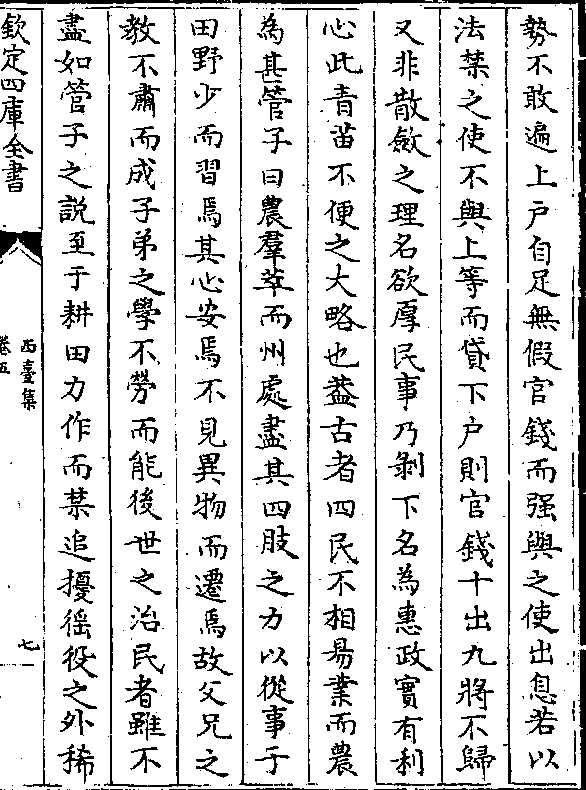 勢不敢遍上戶自足無假官錢而强與之使出息若以
法禁之使不與上等而貸下户則官錢十出九將不歸
又非散斂之理名欲厚民事乃剝下名為惠政實有利
心此青苗不便之大略也葢古者四民不相易業而農
為甚管子曰農羣萃而州處盡其四肢之力以從事于
田野少而習焉其心安焉不見異物而遷焉故父兄之
教不肅而成子弟之學不勞而能後世之治民者雖不
盡如管子之説至于耕田力作而禁追擾徭役之外稀
欽定四庫全書
西臺集
卷五
七